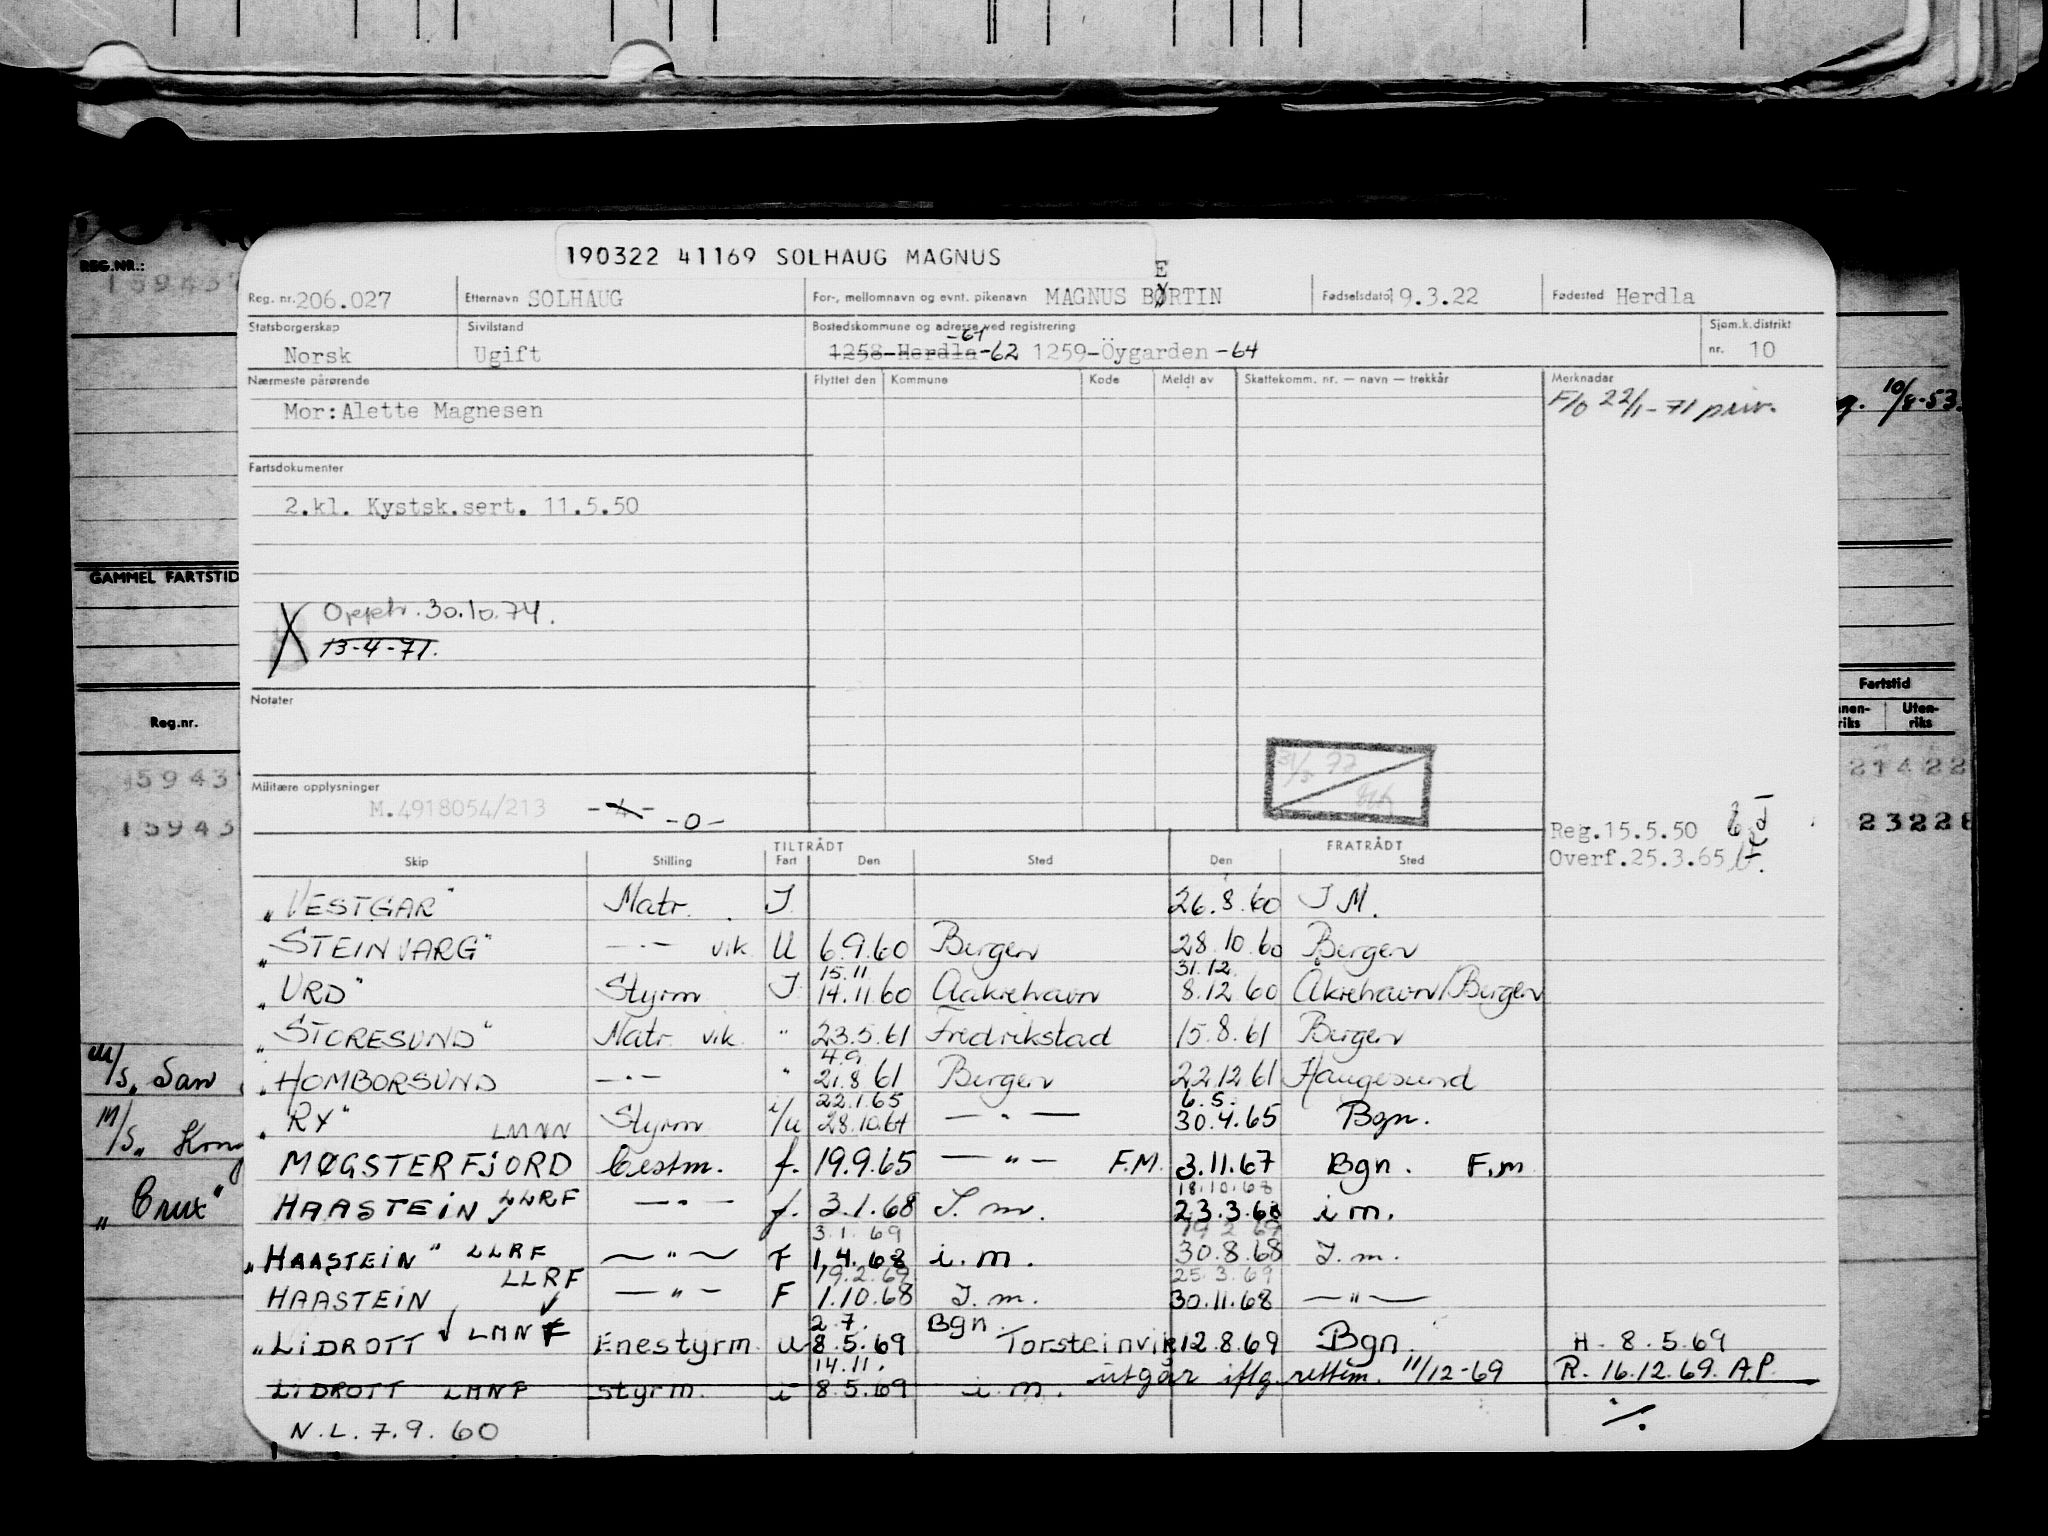 190322 41169 SOLHAUG MAGNUS
REG.NR.:
15943
Reg. nr. 206.027 Etternavn SOLHAUG For-, mellomnavn og evnt. pikenavn MAGNUS BØRTIN Fødselsdato 19.3.22 Fødested Herdla
E
Statsborgerskap Sivilstand Bostedskommune og adresse ved registrering Sjøm.k.distrikt
Norsk Ugift 1258-Herdla -61 -62 1259-Öygarden -64 nr. 10
Nærmeste pårørende Flyttet den Kommune Kode Meldt av Skattekomm. nr. — navn — trekkår Merknader
Mor: Alette Magnesen F/O 22/1-71 priv.
10/8-53.
Fartsdokumenter
2.kl. Kystsk.sert. 11.5.50
GAMMEL FARTSTID
X Opptr. 30.10.74.
13-4-71.
Notater
Fartstid
Reg.nr. Uten-
riks riks
Militære opplysninger
M.4918054/213 -4- -0-
5943 21422
15943 2322
Reg.15.5.50
Overf.25.3.65
TILTRÅDT FRATRÅDT
Skip Stilling Fart Den Sted Den Sted
"VESTGAR" Matr. I 26.8.60 I M.
"STEINVARG" — " — vik U 6.9.60 Bergen 28.10.60 Bergen
15.11 31.12.
"URD" Styrm I 14.11.60 Aakrehavn 8.12 60 Åkrehavn/Bergen
"STORESUND" Matr. vik. " 23.5.61 Fredrikstad 15.8.61 Bergen
4.9
"HOMBORSUND — " — " 21.8 61 Bergen 22.12 61 Haugesund
22.1.65 6.5.
"RY" LMNN Styrm i/u 28.10.64 — " — 30.4.65 Bgn.
MØGSTERFJORD Bestm. f. 19.9.65 — " — F.M. 3.11.67 Bgn. F.m
18.10.68
HAASTEIN LLRF — " — f. 3.1.68 I. m. 23.3.68 i m.
3.1.69 19 2 69
"HAASTEIN" LLRF — " — F 1.4.68 i. m. 30.8.68 I. m.
19.2.69 25.3.69
HAASTEIN LLRF — " — F 1.10.68 I. m. 30.11.68 — " —
2.7. Bgn.
"LIDROTT LMNF Enestyrm. U 8.5.69 Torsteinvik 12.8.69 Bgn. H. 8.5.69
14.11. utgår iflg. rettem. 11/12-69 R. 16.12.69. A.P.
LIDROTT LMNF styrm. i 8.5.69 i. m.
N.L. 7.9.60 ./.
M/S. San
M/S. "Kong
"Crux"